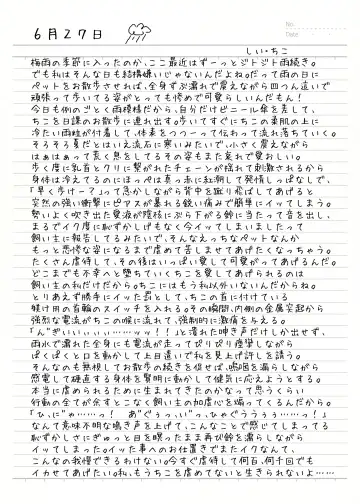 6月27日
しい・ちこ
梅雨の季節に入ったのか、ここ最近はずーっとジトジト雨続き。
でも私はそんな日も結構嫌いじゃないんだよね。だって雨の日に
ペットをお散歩させれば、全身ずぶ濡れで震えながら四つん這いで
頑張って歩いてる姿がとっても惨めで可愛らしいんだもん!
今日も例のごとく雨模様だから、自分だけビニール傘を差して、
ちこを日課のお散歩に連れ出す。歩いてすぐにちこの柔肌の上に
冷たい雨粒が付着して、体表をつつーって伝わって流れ落ちていく。
そろそろ夏だとはいえ流石に寒いみたいで、小さく震えながら
はぁはぁって荒く息をしてるその姿もまた哀れで愛おしい。
歩く度に乳首とクリに繋がれたチェーンが揺れて刺激されるから
身体は冷えてるのにほっぺは真っ赤に紅潮して発情しっぱなしで、
「早く歩けー?」って急かしながら背中を蹴り飛ばしてあげると
突然の強い衝撃にピアスが暴れる鋭い痛みで簡単にイッてしまう。
勢いよく吹き出た愛液が陰核にぶら下がる鈴に当たって音を出し、
まるでイク度に恥ずかしげもなく今イッてしまいましたって
飼い主に報告してるみたいで、そんなえっちなペットなんか
もっと悲惨な姿になるまで虐めて苦しませてあげたくなっちゃう。
たくさん虐待して、その後はいっぱい愛して可愛がってあげるんだ。
どこまでも不幸へと堕ちていくちこを愛してあげられるのは
飼い主の私だけだから。ちこにはもう私以外いないんだからね。
とりあえず勝手にイッた罰として、ちこの首に付けている
躾け用の首輪のスイッチを入れる。その瞬間、内側の金属突起から
強烈な電流がちこの喉に流れて、強制的に激痛を与える。
「ん"ぎぃいいぃ………ッッ!!」と潰れた呻き声だけしか出せず、
雨水で濡れた全身にも電流が走ってぴりぴり痙攣しながら
ぱくぱくと口を動かして上目遣いで私を見上げ許しを請う。
そんなのも無視してお散歩の続きを促せば、嗚咽を漏らしながら
感電して硬直する身体を賢明に動かして健気に応えようとする。
本当に虐められるために生まれてきたのかなって思うくらい
行動の全てが余すとこなく飼い主の加虐心を煽ってくるんだから。
「ひ、にゃ……っ! あ"ぐぅっ、い"っ、ひゅぐううぅぅ……っ!」
なんて意味不明な鳴き声を上げて、こんなことで感じてしまってる
恥ずかしさにぎゅっと目を瞑ったまま再び鈴を濡らしながら
イッてしまった。イッた事へのお仕置きでまたイクなんて、
こんなの我慢できるわけない。今すぐ虐待して何百、何千回でも
イカせてあげたい。私、もうちこを虐めてないと生きられないよ……